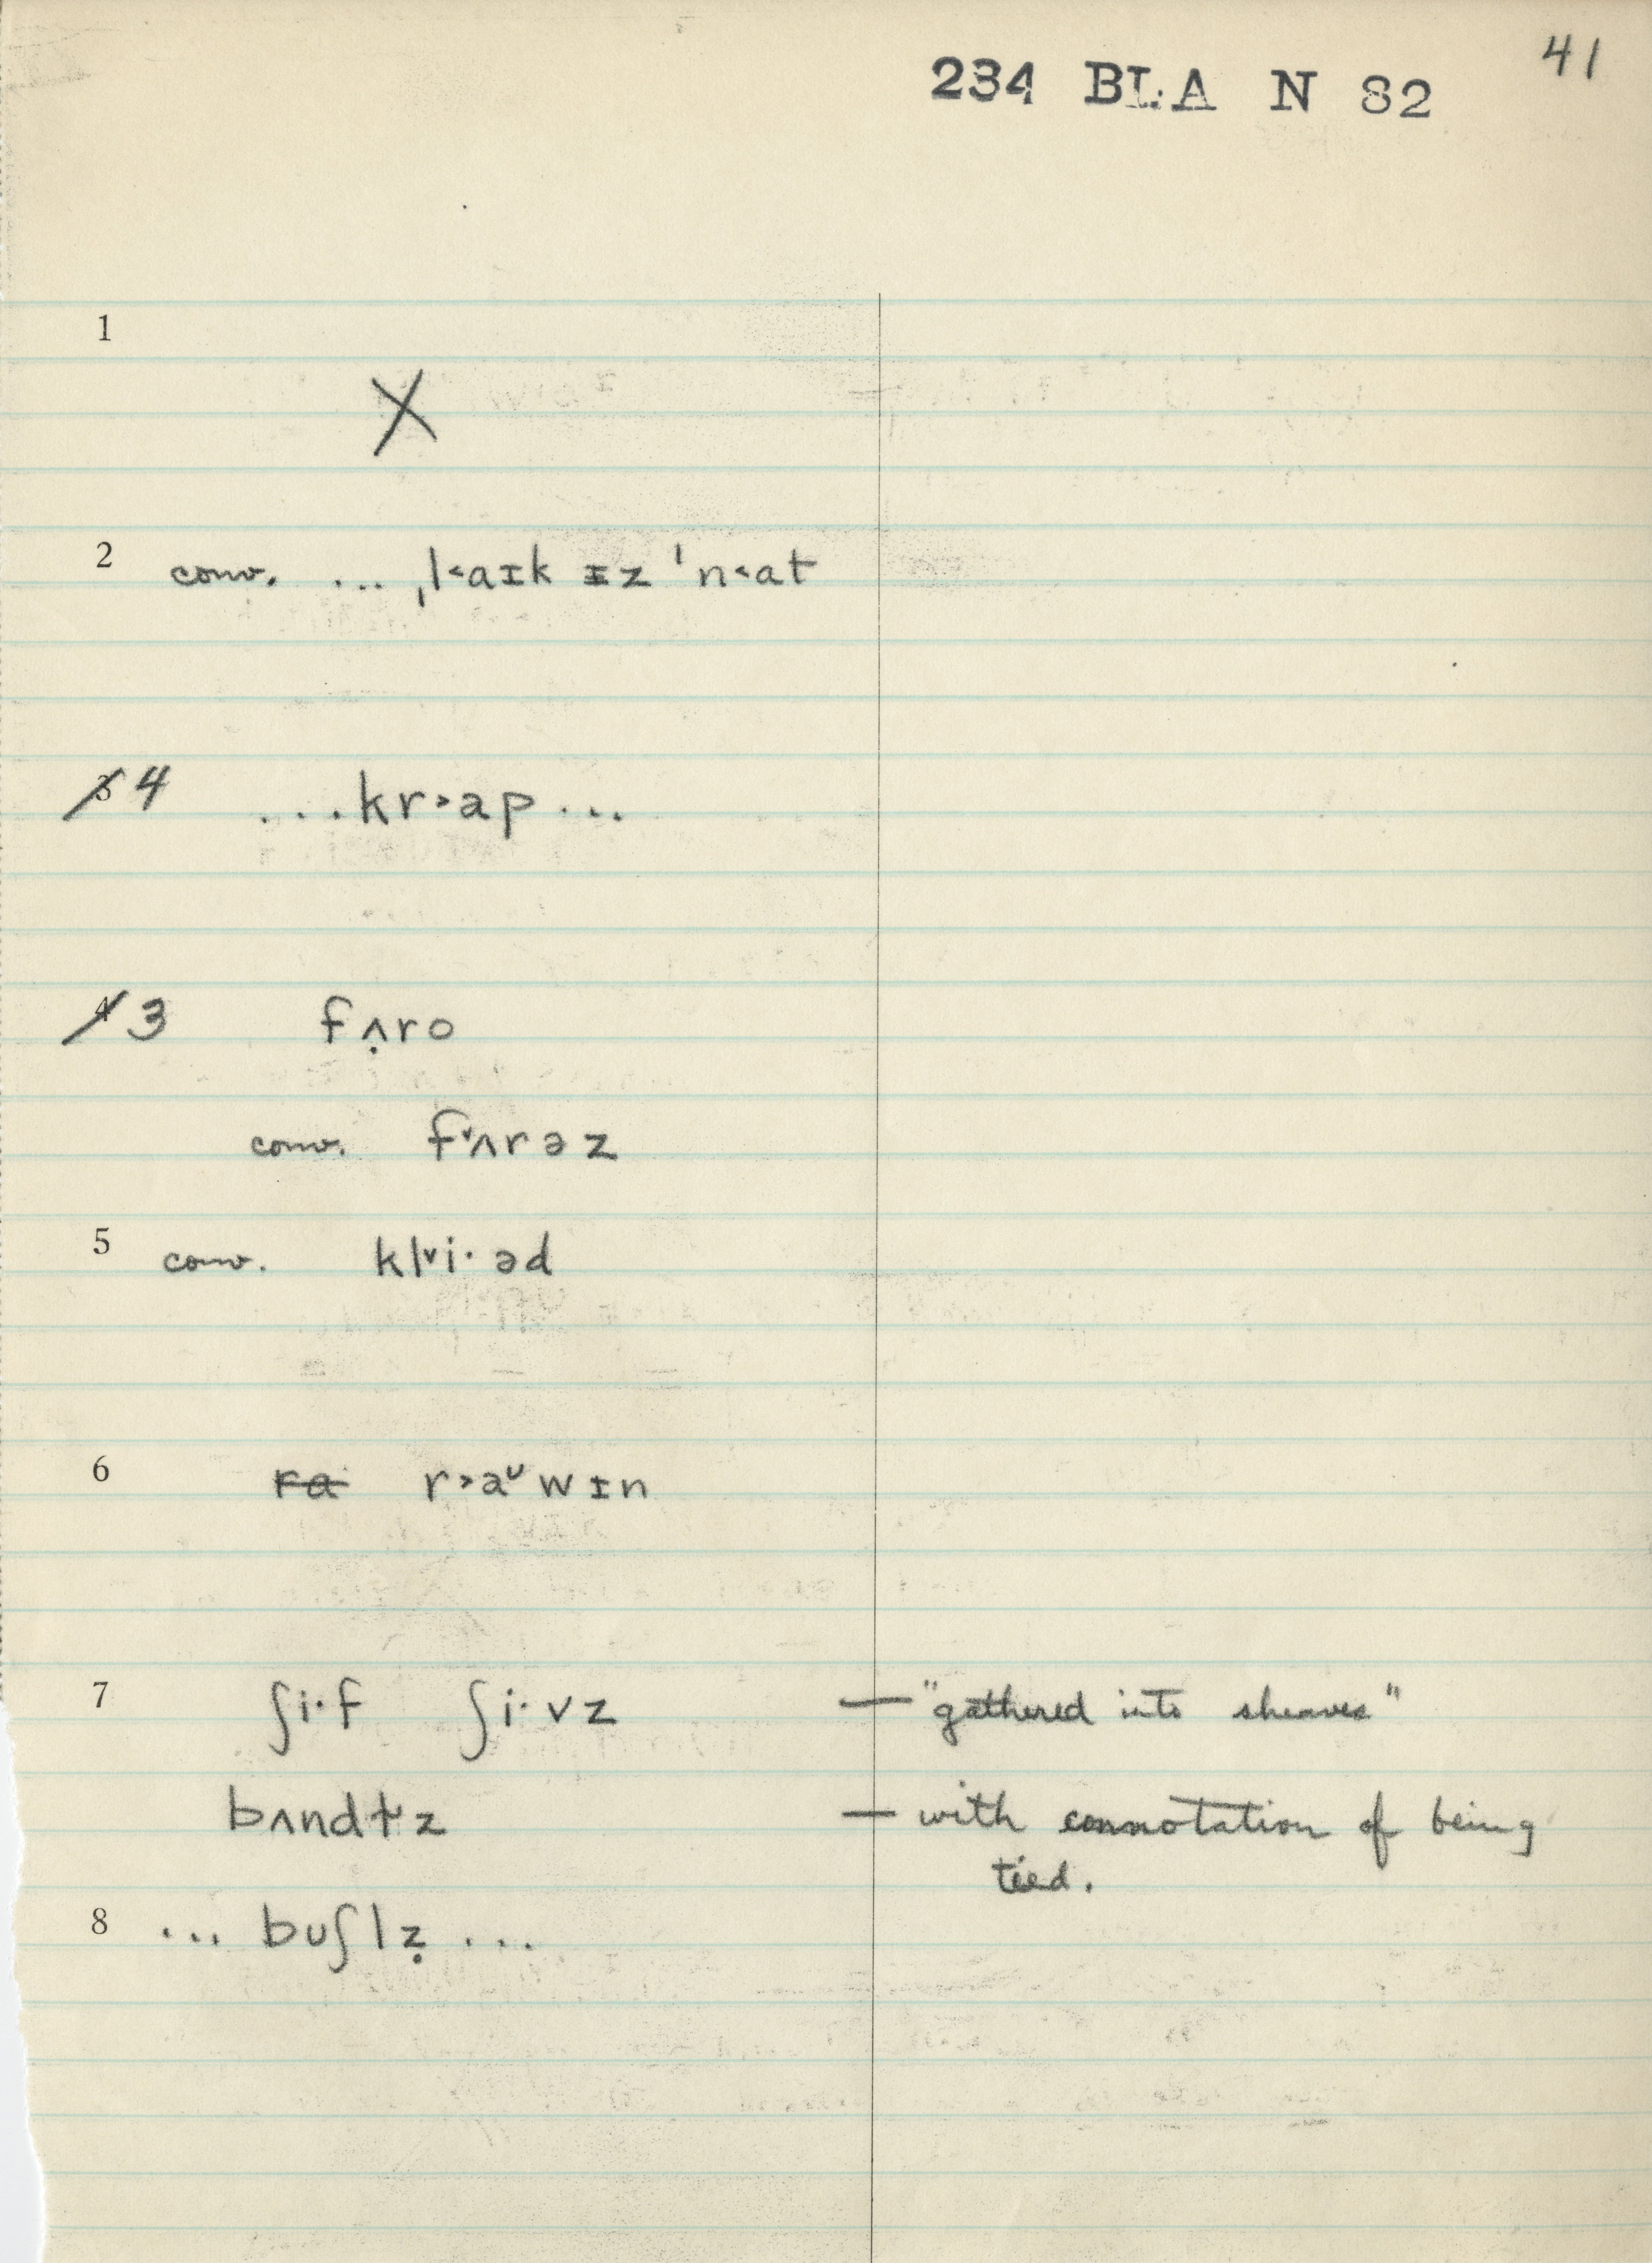 41
234 BLA N 82
1
X
2 conv. ... ˌl˂aɪk ɪz ˈn˂at
3 4 ...kr˃ap...
4 3 fʌ̣ro
conv. f˅ʌrəz
5 conv. kl˅i·əd
6 ra r˃aᶸwɪn
7 ʃi·f ʃi·vz — "gathered into sheaves"
bʌndɫ˅z — with connotation of being
tied.
8 ... buʃlẓ ...